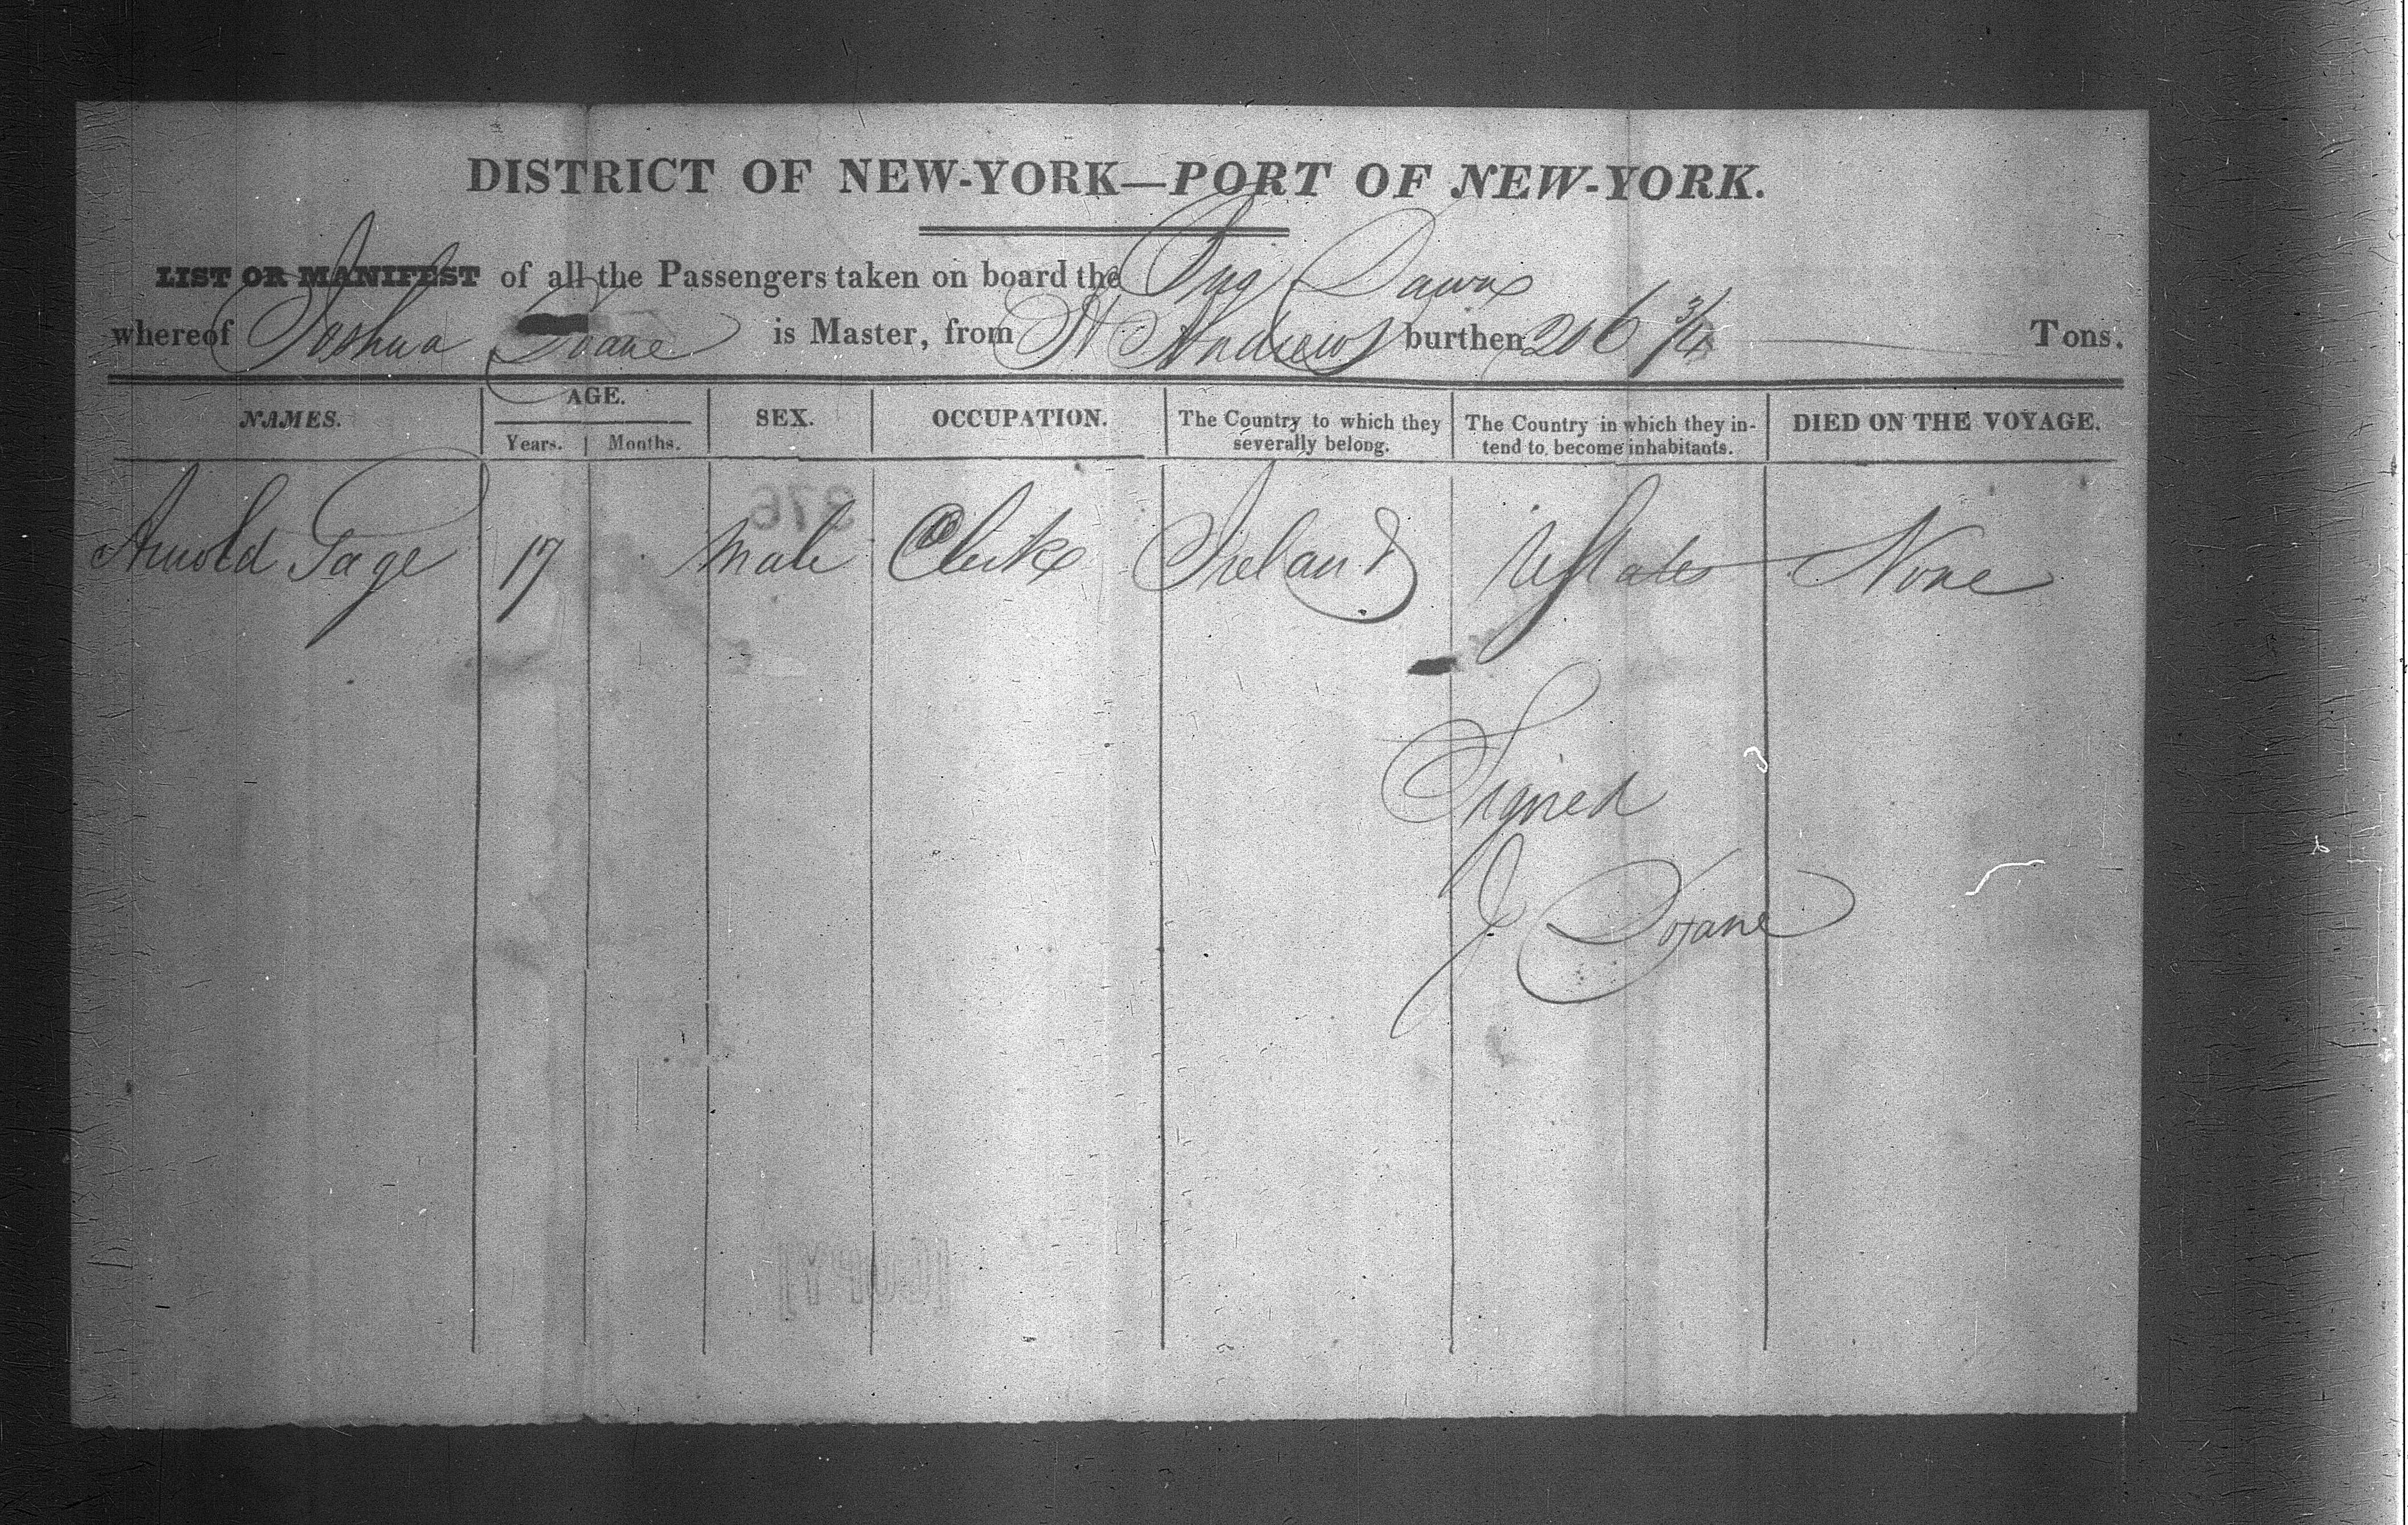 DISTRICT OF NEW-YORK—PORT OF NEW-YORK.
LIST OR MANIFEST of all the Passengers taken on board the Brig Dawn
whereof Joshua Doane is Master, from St Andrews burthen 206 3/4 Tons.
NAMES. AGE. SEX. OCCUPATION. The Country to which they severally belong. The Country in which they in-tend to become inhabitants. DIED ON THE VOYAGE.
Years. Months.
376
Arnold Page 17 Male Clerk Ireland UStates None
Signed
J Doane
[COPY]